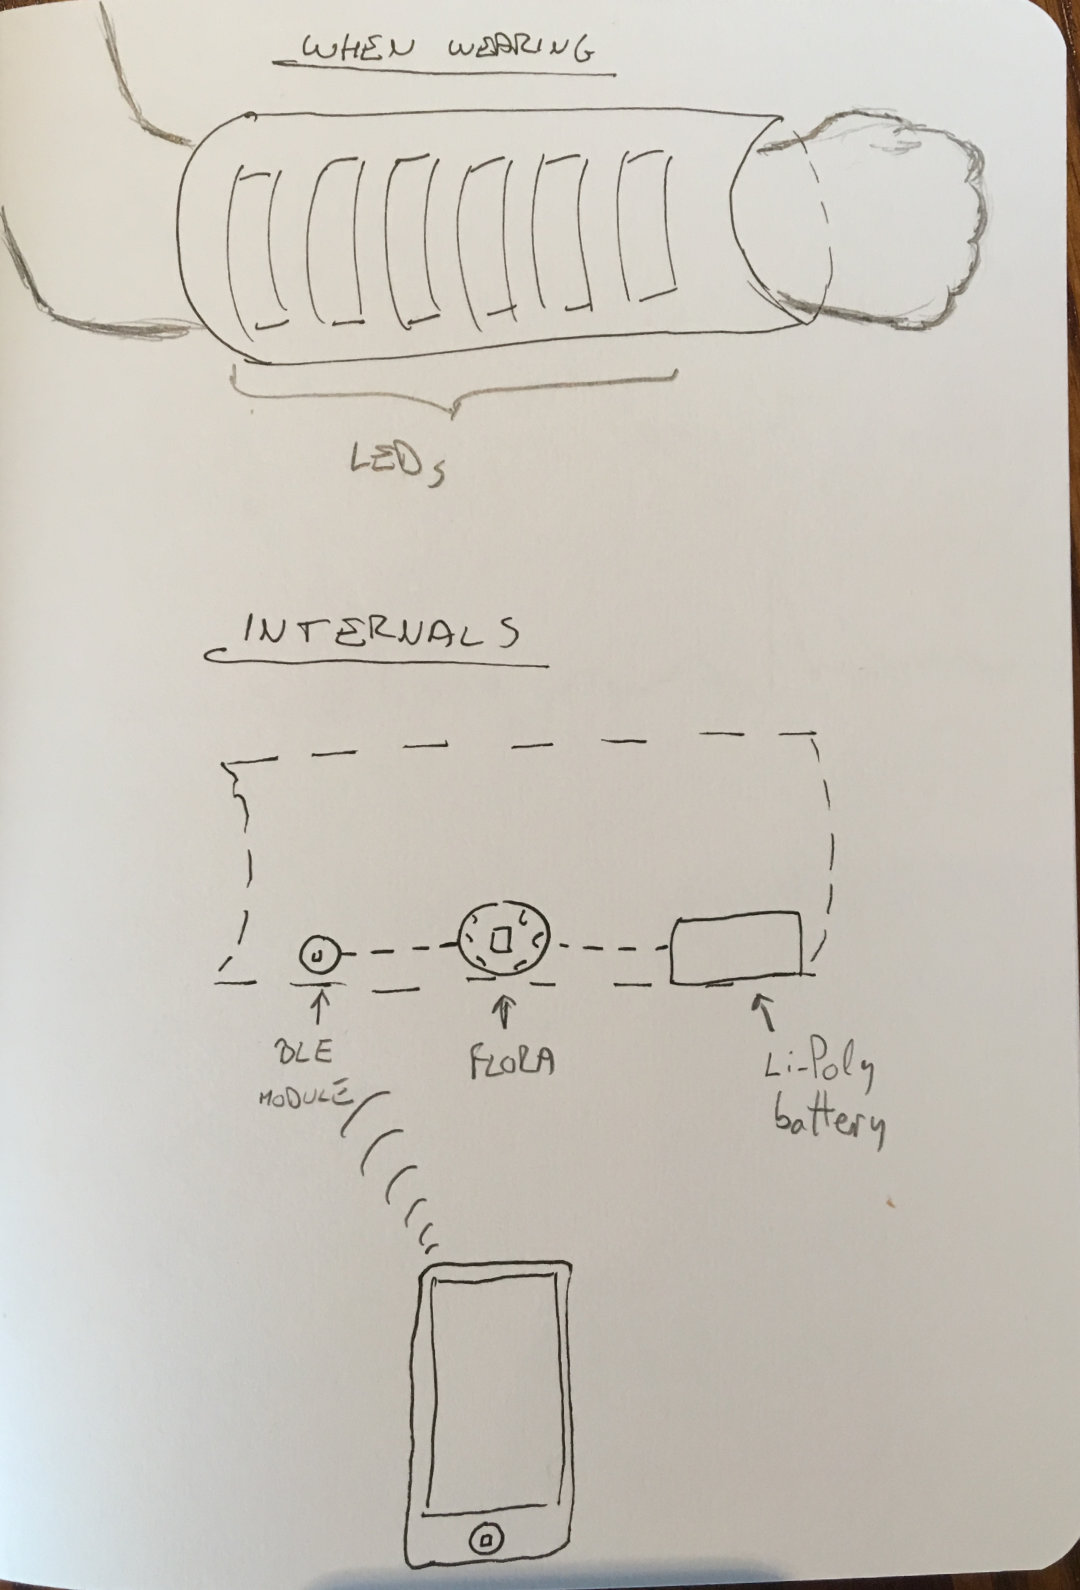 WHEN WEARING
LEDs
INTERNALS
BLE
MODULE
FLORA
Li-Poly
battery